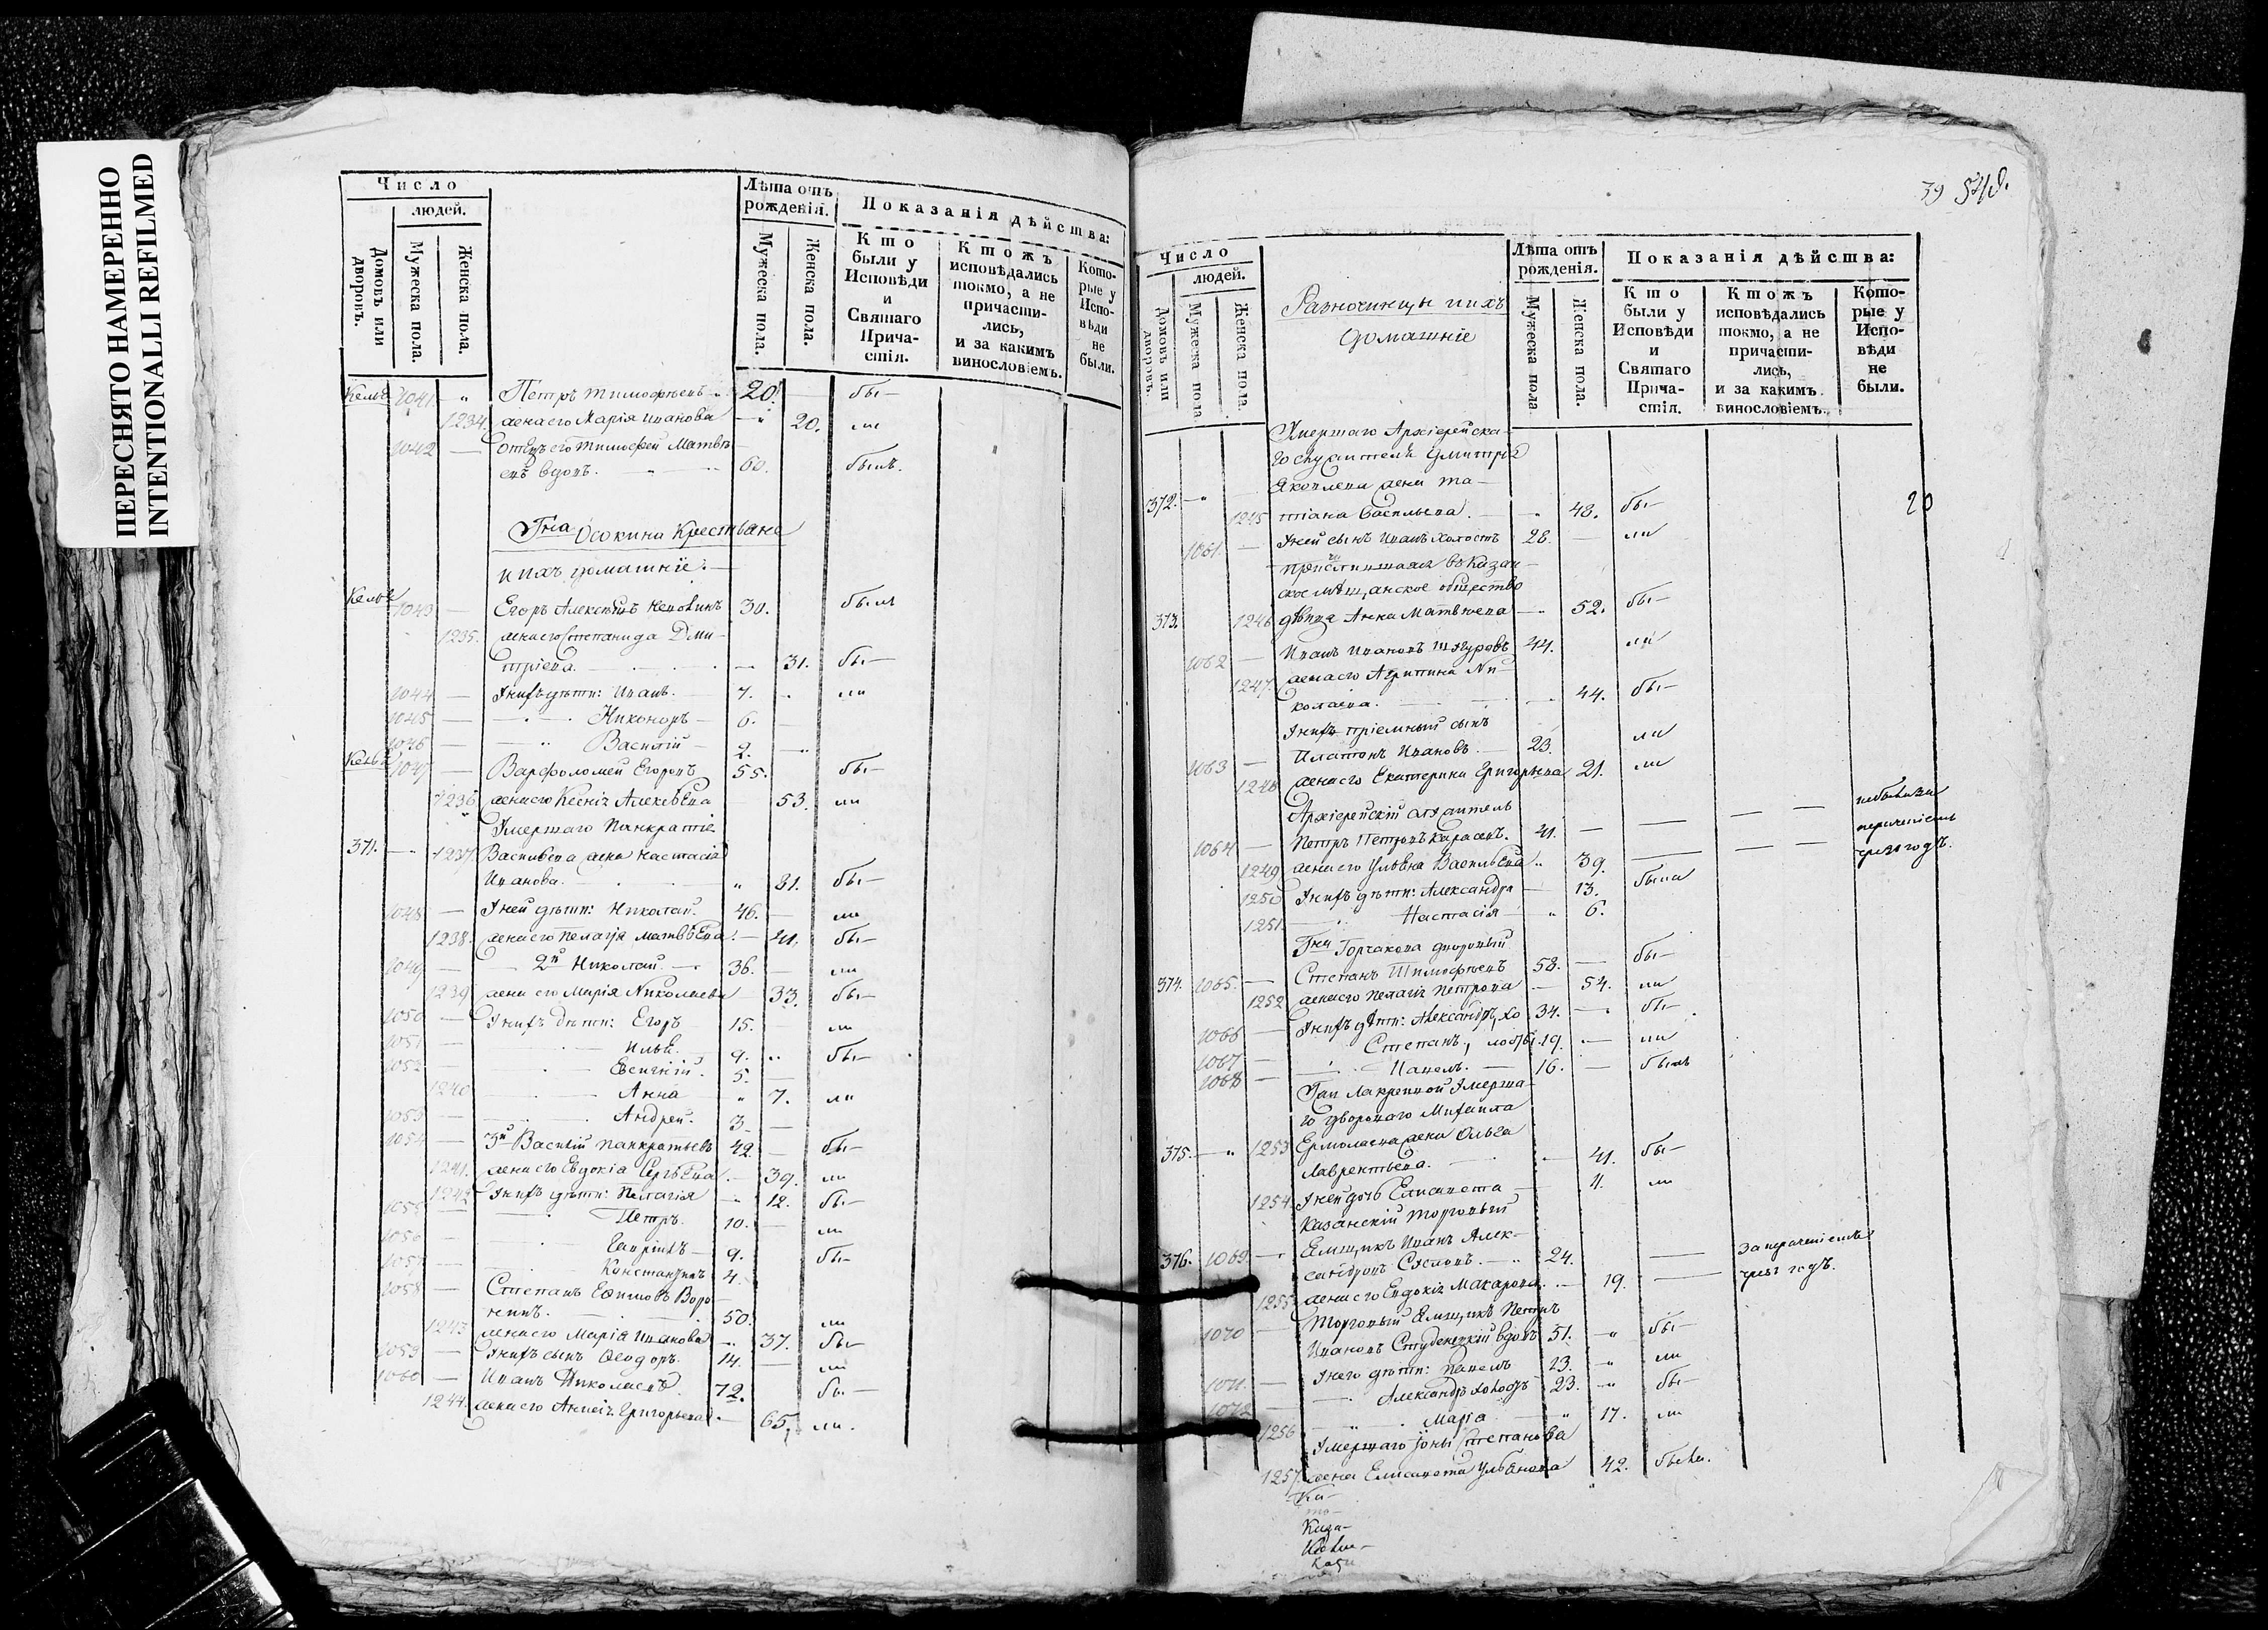 ПЕРЕСНЯТО НАМЕРЕННО
INTENTIONALLI REFILMED
Число
людей.
Домовъ или дворовъ.
Мужеска пола.
Женска пола.
Лѣта отъ рожденія.
Мужеска пола.
Женска пола.
Показанія дѣйства:
Кто были у Исповѣди и Святаго Причастія.
Ктожъ исповѣдались токмо, а не причастились, и за какимъ винословіемъ.
Которые у Исповѣди не были.
1041 Петръ Тимофѣевъ 20. бы—
1234. жена его Марія Иванова 20. ли
1042 — отецъ его Тимофей Матвѣ
евъ вдовъ. 60. былъ.
Гна Осокина Крестьяне
и ихъ домашніе.
1043 — Егоръ Алексѣевъ 30. былъ
1235. жена его Степанида Дми—
тріева. 31. бы—
1044 — Ихъ дѣти: Иванъ. 7. ли
1045 — Никоноръ 6.
1046 — Василій 2.
1047 — Варфоломей Егоровъ 55. бы—
1236 жена его Ксенія Алексѣева 53. ли
Умершаго Панкратія
371. — 1237. Васильева жена Настасія
Иванова. 81. бы—
1048 — У ней дѣти: Николай. 46. ли
1238. жена его Пелагія Матвѣева. 41. бы—
1049 — 2й Николай. 36. ли
1239 жена его Марія Николаева 33. бы—
1050 — У нихъ дѣти: Егоръ 15. ли
1051 — Илья. 9. бы—
1052 — Евгеній. 5.
1240 Анна 7. ли
1053 — Андрей. 3.
1054 — 3й Василій Панкратьевъ 42. бы—
1241. жена его Евдокія Сергѣева. 39. ли
1242 У нихъ дѣти: Пелагія 12. бы—
1055 Петръ. 10. ли
1056 — Гавріилъ 9. бы—
1057 — Константинъ 4.
1058 — Степанъ Ефимовъ Воро—
нинъ. 50. ли
1243 жена его Марія Иванова 37. бы—
1059 — У нихъ сынъ Ѳеодоръ. 14. — ли
1060 — Иванъ Николаевъ. 72. бы—
1244. жена его Анисія Григорьева. 65. ли.
39
Число
людей.
Домовъ или дворовъ.
Мужеска пола
Женска пола.
Разночинцы и ихъ
домашніе
Лѣта отъ рожденія.
Мужеска пола
Женска пола.
Показанія дѣйства:
Кто были у Исповѣди и Святаго Причастія.
Ктожъ исповѣдались токмо, а не причастились, и за какимъ винословіемъ.
Которые у Исповѣди не были.
Умершаго Архіерейска—
го служителя Дмитрія
Яковлева жена Та—
372. 1245 тіана Васильева. 48. бы— 20
1061. — У ней сынъ Иванъ холостъ 28. — ли
въ Казан—
ское мѣщанское общество
373. 1246 дѣвица Анна Матвѣева 52. бы—
1062 — Иванъ Ивановъ 44. ли
1247. жена его Агрипина Ни—
колаева. 44. бы—
У нихъ пріемный сынъ
1063 — Платонъ Ивановъ. 23. ли
1248 жена его Екатерина Григорьева 21. ли
Архіерейскій служитель
1064 — Петръ Петровъ Карасевъ. 41. —
1249 жена его Ульяна Васильева 39. —
1250 У нихъ дѣти: Александра 13. была
1251 Настасія 6.
Гна Горчакова дворовый
374. 1065. — Степанъ Тимофѣевъ 58. — бы—
1252 жена его Пелагія Петрова 54. ли
1066 — У нихъ дѣти: Александръ, хо 34. бы—
1067 — Степанъ, лосты 19. ли
1068 — Павелъ. 16. — былъ
умерша—
го двороваго Михаила
375. 1253 Ермолаева жена Ольга
Лаврентьева. 41. бы—
1254. У ней дочь Елисавета 11. ли
Казанскій торговый
376. 1069 — Ямщикъ Иванъ Алек—
сандровъ Сусловъ. 24. — за
1255 жена его Евдокія Макарова. 19. — чрезъ годъ.
1070 — Торговый ямщикъ Петръ
Ивановъ Студенцкій вдовъ 51. бы—
1071. — У него дѣти: Павелъ 23. ли
1072 — Александръ 23. бы—
1256 Марія 17. ли
Умершаго Іоны Степанова
1257. жена Елисавета Ульянова 42. была.